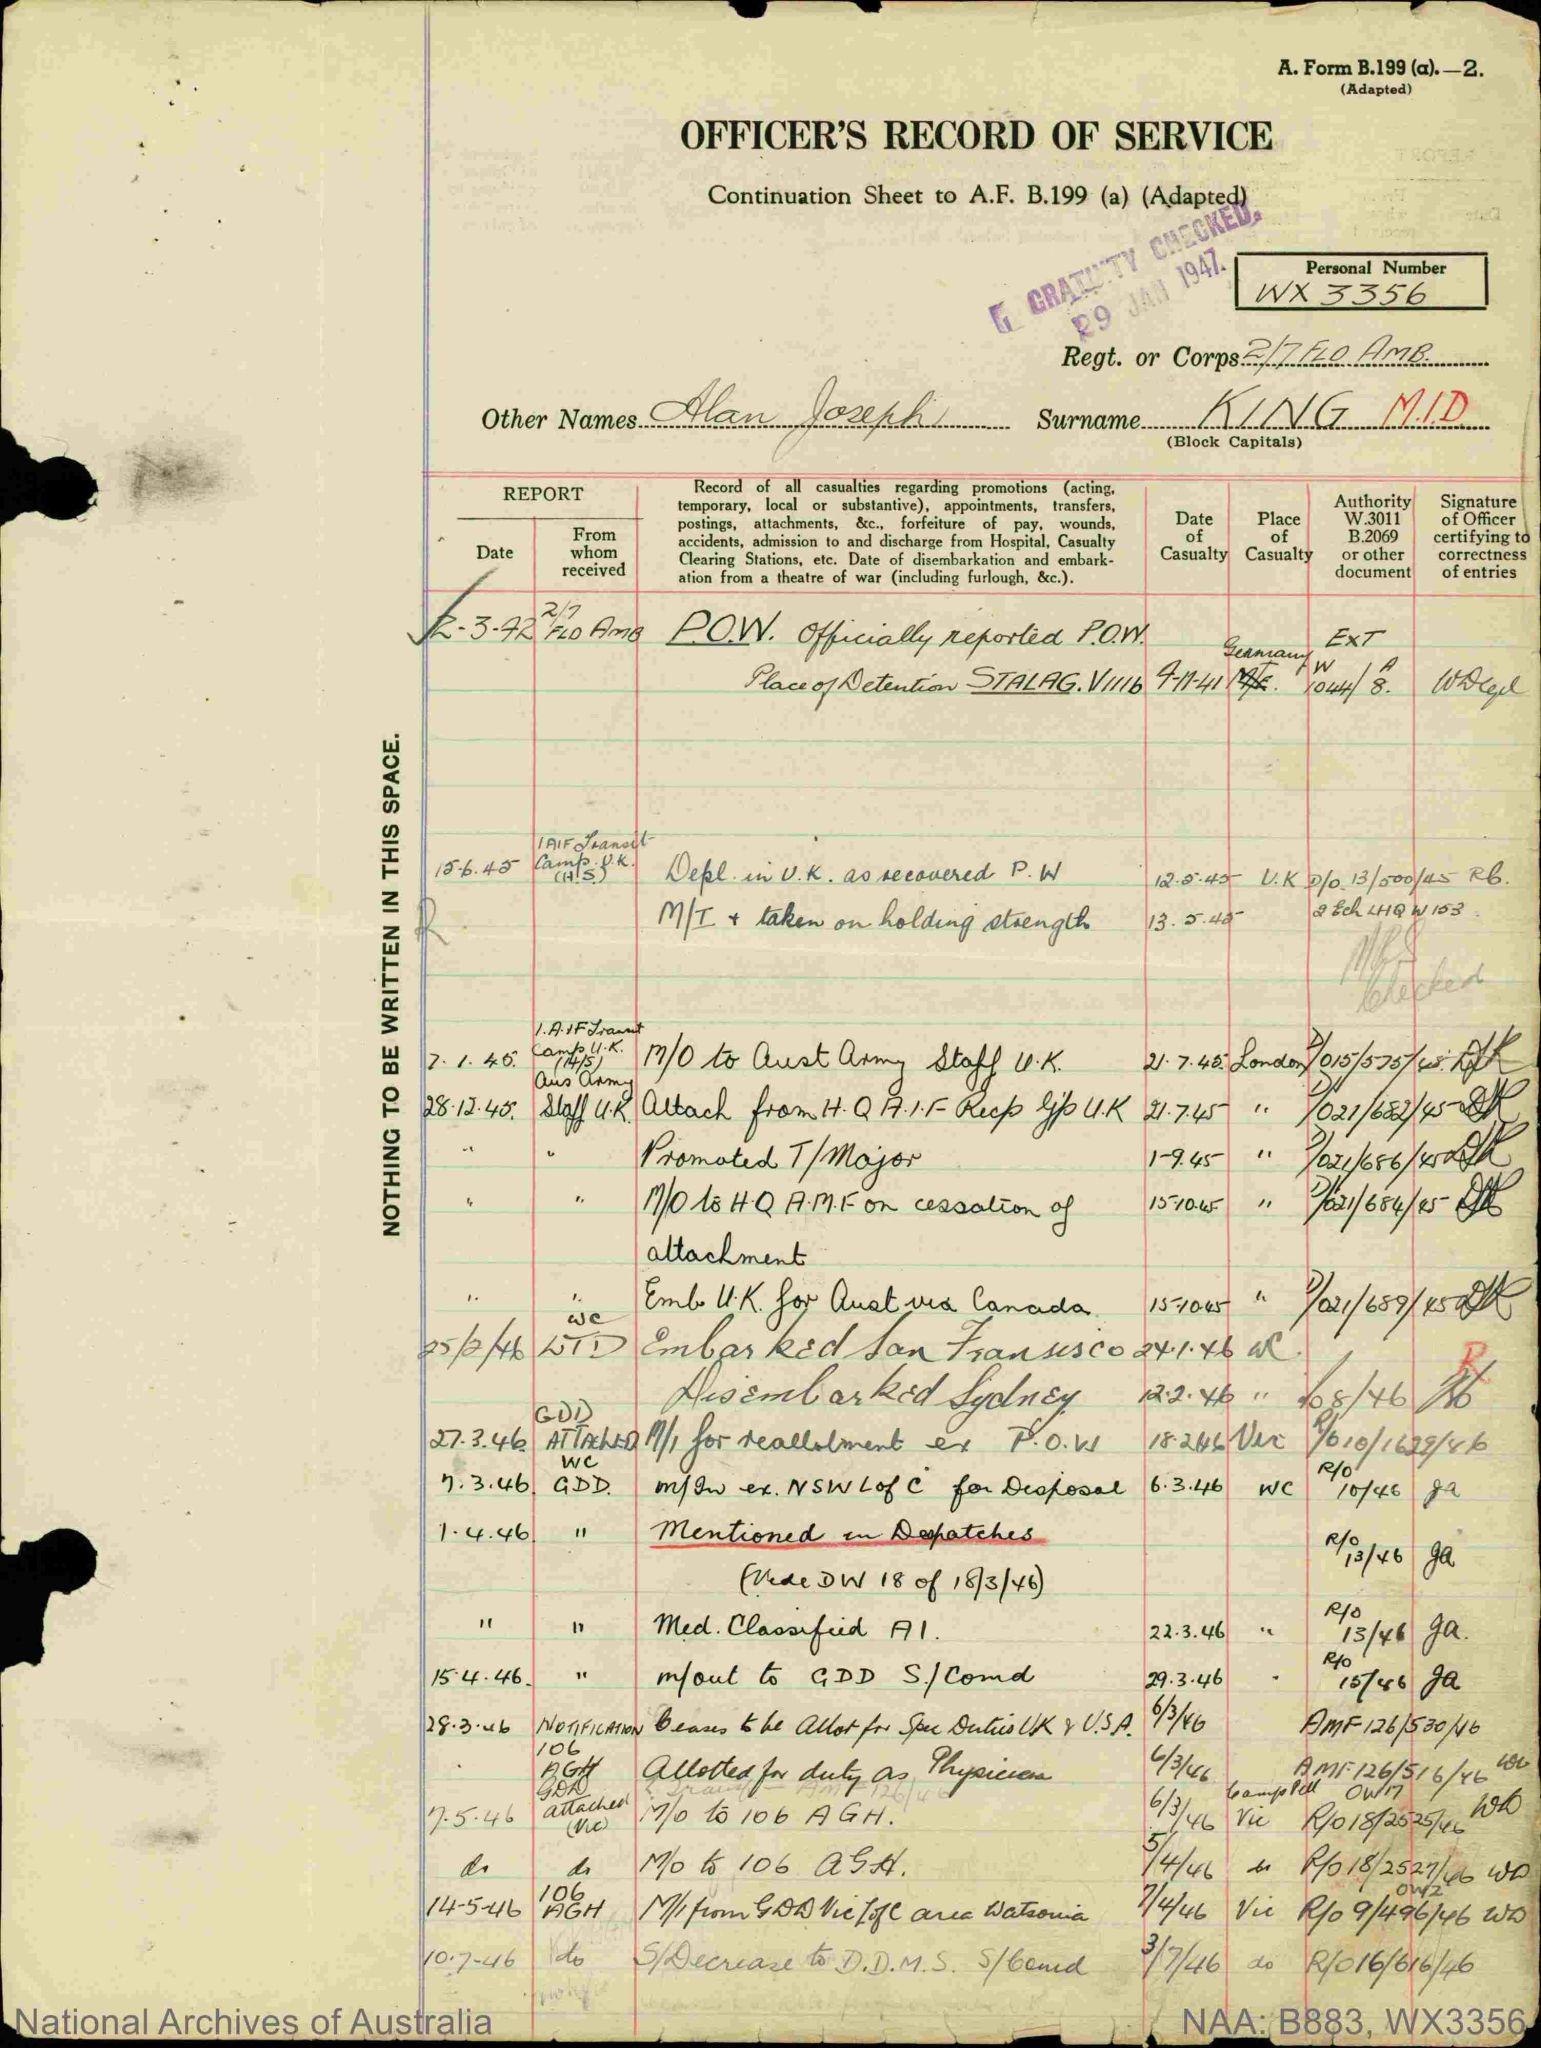 A. Form B.199 (a).—2.
(Adapted)
OFFICER'S RECORD OF SERVICE
Continuation Sheet to A.F. B.199 (a) (Adapted)
GRATUITY CHECKED.
29 JAN 1947.
Personal Number
WX 3356
Regt. or Corps 2/7 FLD AMB.
Other Names Alan Joseph Surname KING M.I.D
(Block Capitals)
NOTHING TO BE WRITTEN IN THIS SPACE.
REPORT
Date
From whom received
Record of all casualties regarding promotions (acting,
temporary, local or substantive), appointments, transfers,
postings, attachments, &c., forfeiture of pay, wounds,
accidents, admission to and discharge from Hospital, Casualty
Clearing Stations, etc. Date of disembarkation and embark-
ation from a theatre of war (including furlough, &c.).
Date of Casualty
Place of Casualty
Authority W.3011 B.2069 or other document
Signature of Officer certifying to correctness of entries
2-3-42 2/7 FLD Amb P.O.W. Officially reported P.O.W. EXT
Place of Detention STALAG. VIIIb 9-11-41 Germany W 1044/8. A
15.6.45 1 AIF Transit Camp U.K. (H.S.) Depl. in U.K. as recovered P.W 12.5.45 U.K D/O 13/500/45 RG.
M/I + taken on holding strength 13.5.45 2 Ech LHQ W 153
Checked
7.1.45. 1.A.IF Transit Camp U.K. M/O to Aust Army Staff U.K. 21.7.45. London D/015/575/45
28.12.45. Aus Army Staff U.K. Attach from H.Q A.I.F Recp Gp U.K 21.7.45 " D/021/682/45
" " Promoted T/Major 1-9.45 " D/021/686/45
" " M/O to H.Q A.M.F on cessation of 15-10.45 " D/021/684/45
attachment
" " Emb U.K. for Aust via Canada 15-10.45 " D/021/689/45
25/2/46 WC LTD Embarked San Fransisco 24.1.46 WC.
Disembarked Sydney 12.2.46 " 8/46
27.3.46. GDD ATTACHED M/I for reallotment ex P.O.W 18.2.46 Vic R/O 10/1629/46
7.3.46 WC GDD. m/In ex. NSW L of C for Disposal 6.3.46 WC R/O 10/46 ga
1.4.46 " Mentioned in Despatches R/O 13/46 ga
(Vide DW 18 of 18/3/46)
" " Med. Classified A1. 22.3.46 " R/O 13/46 ga.
15.4.46. " m/out to GDD S./Comd 29.3.46 " R/O 15/46 ga
28.3.46 NOTIFICATION Ceases to be Allot for Spec Duties UK & U.S.A. 6/3/46 AMF 126/530/46
106 AGH Allotted for duty as Physician 6/3/46 AMF 126/516/46 WD
7.5.46 GDD attached (Vic) M/O to 106 AGH. 6/3/46 Camp Pell Vic OW17 R/O 18/2525/46 WD
do do M/O to 106 AGH. 5/4/46 do R/O 18/2527/46 WD
14-5-46 106 AGH M/I from GDD Vic L of C area Watsonia 7/4/46 Vic OW2 R/O 9/496/46 WD
10.7-46 do S/Decrease to D.D.M.S. S/Comd 3/7/46 do R/O 16/616/46
National Archives of Australia
NAA: B883, WX3356